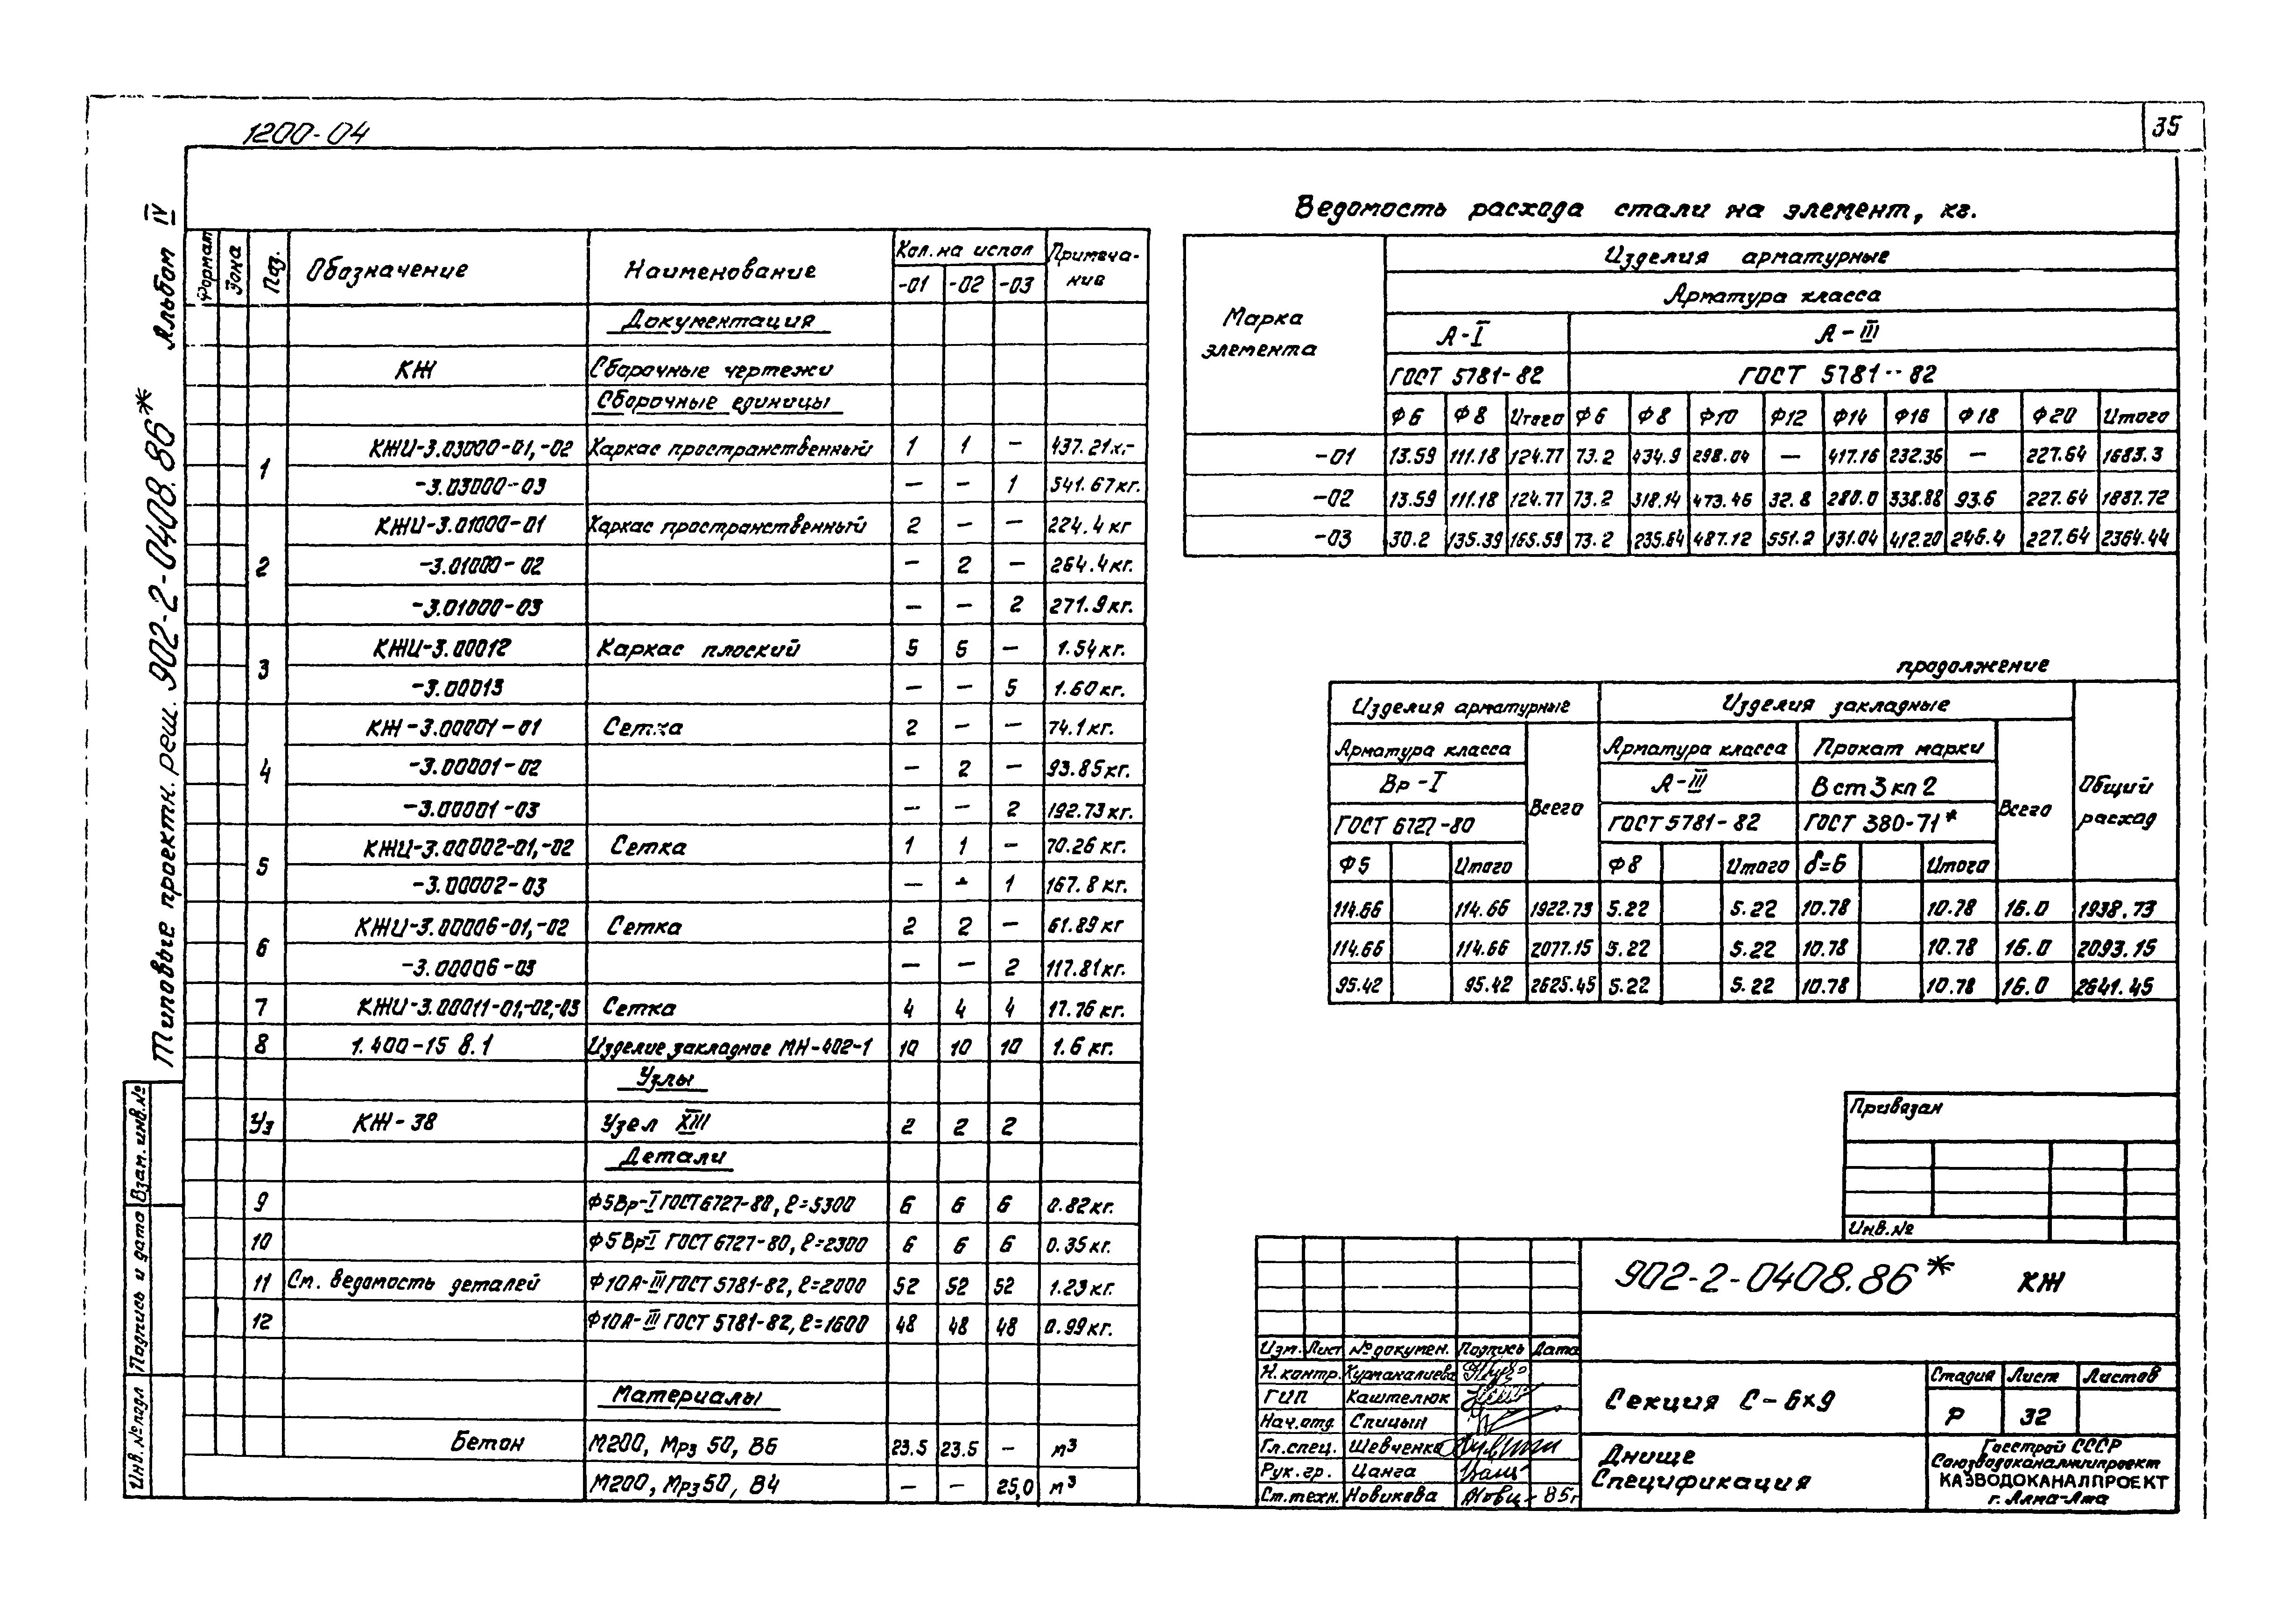 1200-04
35
Альбом IV
Типовые проектн. реш. 902-2-0408.86*
Взам. инв. №
Подпись и дата
Инв. № подл
Формат Зона Поз. Обозначение Наименование Кол. на испол Примеча-
ние
-01 -02 -03
Документация
КЖ Сборочные чертежи
Сборочные единицы
1 КЖИ-3.03000-01,-02 Каркас пространственный 1 1 — 437.21к.-
-3.03000-03 — — 1 541.67кг.
2 КЖИ-3.01000-01 Каркас пространственный 2 — — 224.4 кг
-3.01000-02 — 2 — 264.4кг.
-3.01000-03 — — 2 271.9кг.
3 КЖИ-3.00012 Каркас плоский 5 5 — 1.54кг.
-3.00013 — — 5 1.60кг.
4 КЖ-3.00001-01 Сетка 2 — — 74.1кг.
-3.00001-02 — 2 — 93.85кг.
-3.00001-03 — — 2 192.73кг.
5 КЖИ-3.00002-01,-02 Сетка 1 1 — 70.26кг.
-3.00002-03 — - 1 167.8кг.
6 КЖИ-3.00006-01,-02 Сетка 2 2 — 61.89кг
-3.00006-03 — — 2 117.81кг.
7 КЖИ-3.00011-01,-02,-03 Сетка 4 4 4 17.76кг.
8 1.400-15 В.1 Изделие закладное МН-402-1 10 10 10 1.6 кг.
Узлы
У3 КЖ-38 Узел XIII 2 2 2
Детали
9 Ф5Вр-I ГОСТ 6727-80, ℓ=5300 6 6 6 0.82кг.
10 Ф5Вр-I ГОСТ 6727-80, ℓ=2300 6 6 6 0.35кг.
11 См. ведомость деталей Ф10А-III ГОСТ 5781-82, ℓ=2000 52 52 52 1.23кг.
12 Ф10А-III ГОСТ 5781-82, ℓ=1600 48 48 48 0.99кг.
Материалы
Бетон М200, Мрз 50, В6 23.5 23.5 — м³
М200, Мрз50, В4 — — 25,0 м³
Ведомость расхода стали на элемент, кг.
Марка
элемента
Изделия арматурные
Арматура класса
А-I А-III
ГОСТ 5781-82 ГОСТ 5781-82
Ф6 Ф8 Итого Ф6 Ф8 Ф10 Ф12 Ф14 Ф16 Ф18 Ф20 Итого
-01 13.59 111.18 124.77 73.2 434.9 298.04 — 417.16 232.36 — 227.64 1683.3
-02 13.59 111.18 124.77 73.2 318.14 473.46 32.8 280.0 338.88 93.6 227.64 1837.72
-03 30.2 135.39 165.59 73.2 235.64 487.12 551.2 131.04 412.20 246.4 227.64 2364.44
продолжение
Изделия арматурные Изделия закладные Общий
расход
Арматура класса Всего Арматура класса Прокат марки Всего
Вр-I А-III В ст 3 кп 2
ГОСТ 6727-80 ГОСТ 5781-82 ГОСТ 380-71*
Ф5 Итого Ф8 Итого δ=6 Итого
114.66 114.66 1922.73 5.22 5.22 10.78 10.78 16.0 1938.73
114.66 114.66 2077.15 5.22 5.22 10.78 10.78 16.0 2093.15
95.42 95.42 2625.45 5.22 5.22 10.78 10.78 16.0 2641.45
Привязан
Инв.№
902-2-0408.86* КЖ
Изм. Лист № докумен. Подпись Дата
Н.контр. Курманалиева
ГИП Каштелюк
Нач.отд. Спицын
Гл.спец. Шевченко
Рук.гр. Цанга
Ст.техн. Новикова 85г
Секция С-6×9
Стадия Лист Листов
Р 32
Днище
Спецификация
Госстрой СССР
Союзводоканалниипроект
КАЗВОДОКАНАЛПРОЕКТ
г. Алма-Ата